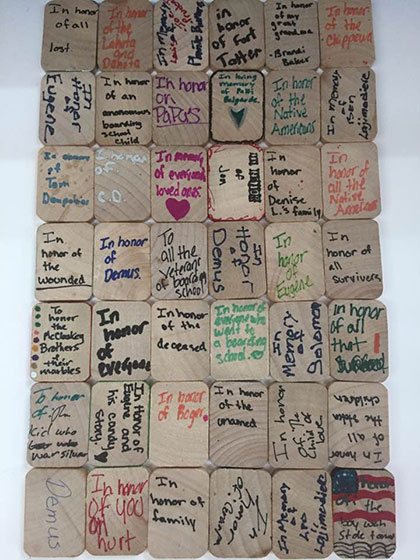 In honor
of all
lost.
In honor
of the
Lakota
and
Dakota
In Memory
in
honor
of Fort
Totter
In honor
of my
great
grandma
-Brandi
Baker
In honor
of the
Chippewa
In
Honor
of
Eugene
In honor
of an
boarding
school
child
In honor
on
PaPa's
In loving
memory
of Patti
Belgarde
In honor
of the
Native
Americans
In
memory
of
In memory
of
Tom
In honor
of
In memory
of everyone's
loved ones.
Jim
In
honor
of
Denise
L.'s family
In
honor of
all the
Native
Americans
In
honor
of the
wounded
In honor
of
Demus.
To
all the
veterans
of boarding
school
In
Honor
of
Demus
In
honor
of
Eugene
In
honor of
all
survivers
To
honor
the
McCloskey
Brothers
&
their
marbles
In
honor
of
Everyone
In
honor
of the
deceased
In honor of
everyone who
went to
a boarding
school.
In
Memory
of
Solomon
In
honor
of all
that
Survived
To
honor
of: The
Kid who
war silver
In Honor of
Eugene and
his candy
story
In
honor of
Roger.
In
honor
of the
unamed
In
honor of
The
Child of
Love
In
honor
of all
the stolen
children
Demus
In
honor
of you
on
hurt
In
honor of
family
In
Honor
of:
In Memory
of
honor
of the
boy woh
Stole